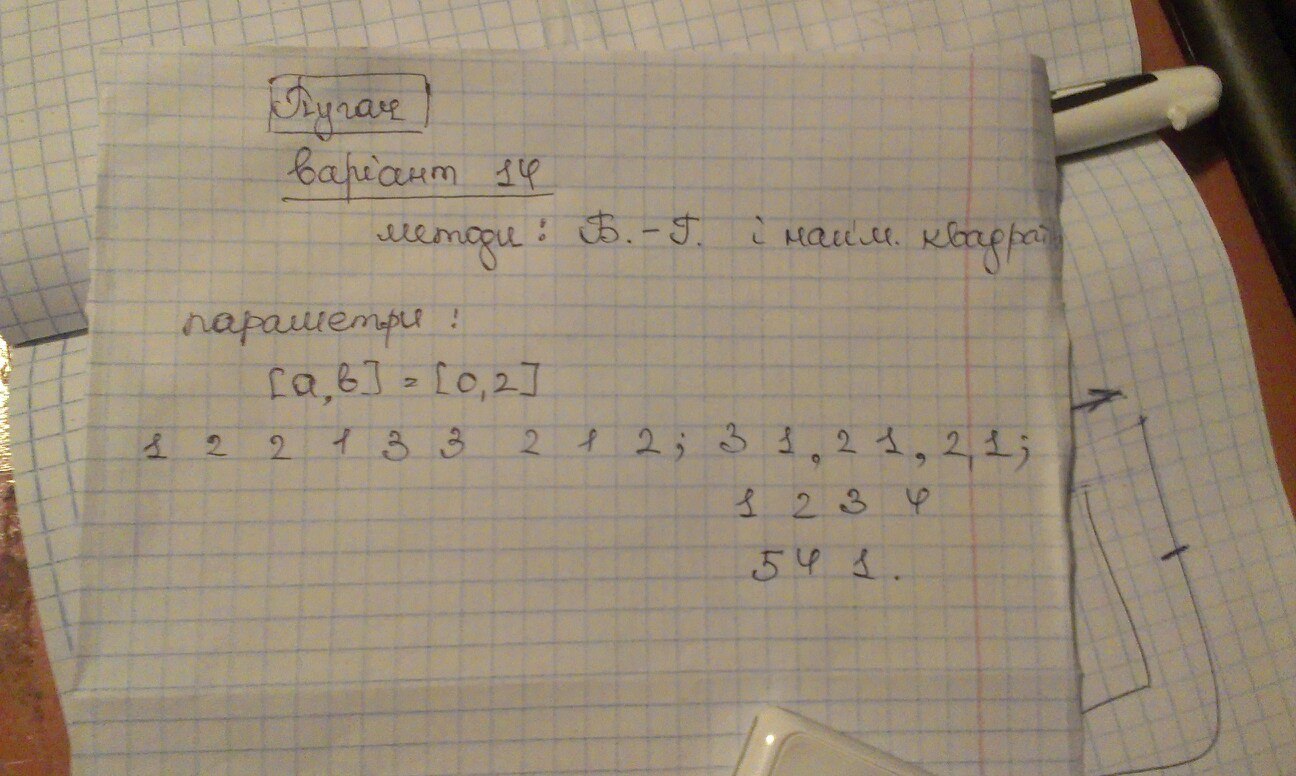 Пугач
варіант 14
методи: Б.-Г. і найм. квадратів
параметри:
[a,b] = [0,2]
1 2 2 1 3 3 2 1 2; 3 1,2 1,2,1;
1 2 3 4
5 4 1.